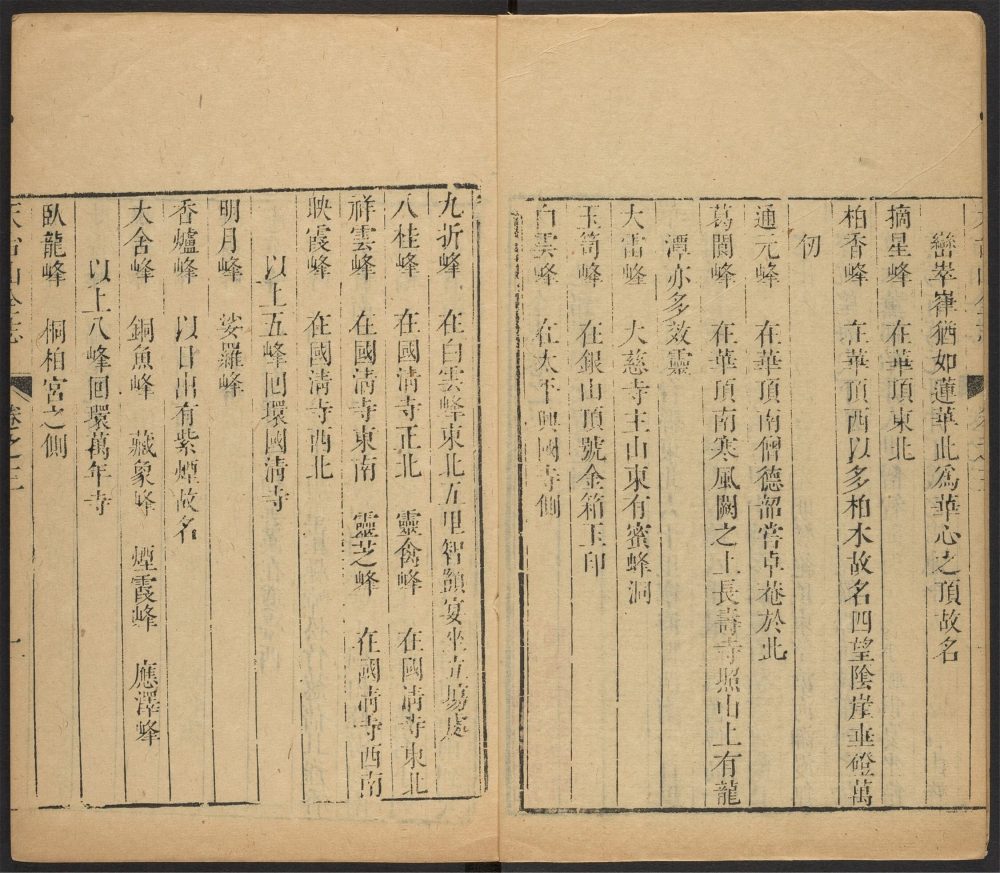 巒崒嵂猶如蓮華此爲華心之頂故名
摘星峰　在華頂東北
柏香峰　在華頂西以多柏木故名四望陰崖垂磴萬
仞
通元峰　在華頂南僧德韶嘗卓菴於北
葛閬峰　在華頂南寒風闕之上長壽寺照山上有龍
潭亦多效靈
大雷峰　大慈寺主山東有蜜蜂洞
玉笥峰　在銀山頂號金箱玉印
白雲峰　在太平興國寺側
九折峰　在白雲峰東北五里智顗宴坐五場處
八桂峰　在國淸寺正北　靈禽峰　在國淸寺東北
祥雲峰　在國淸寺東南　靈芝峰　在國淸寺西南
映霞峰　在國淸寺西北
以上五峰回環國淸寺
明月峰　娑羅峰
香爐峰　以日出有紫煙故名
大舍峰　銅魚峰　藏象峰　煙霞峰　應澤峰
以上八峰回環萬年寺
臥龍峰　桐柏宮之側
天台山全志　卷之三